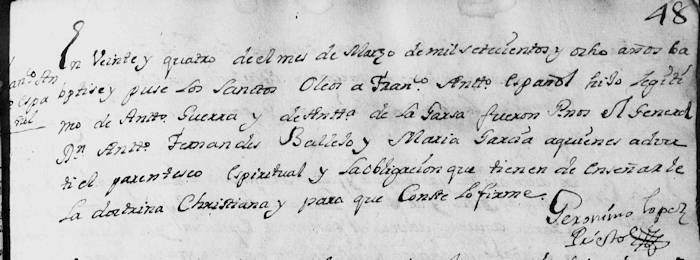 48
En Veinte y quatro de el mes de Março de mil setecientos y ocho años ba
Franco. An
to. espa
ñol
ptise y puse los Sanctos Oleos a Franco. Antto. español hijo legiti
mo de Antto. Guerra y de Antta. de la Garsa fueron Pnos el General
Dn Antto. Fernandes Ballejo y Maria Garcia aquienes adver
ti el parentesco espiritual y la obligacion que tienen de enseñarle
la doctrina Christiana y para que Conste lo firme.
Geronimo Lopez
Prieto